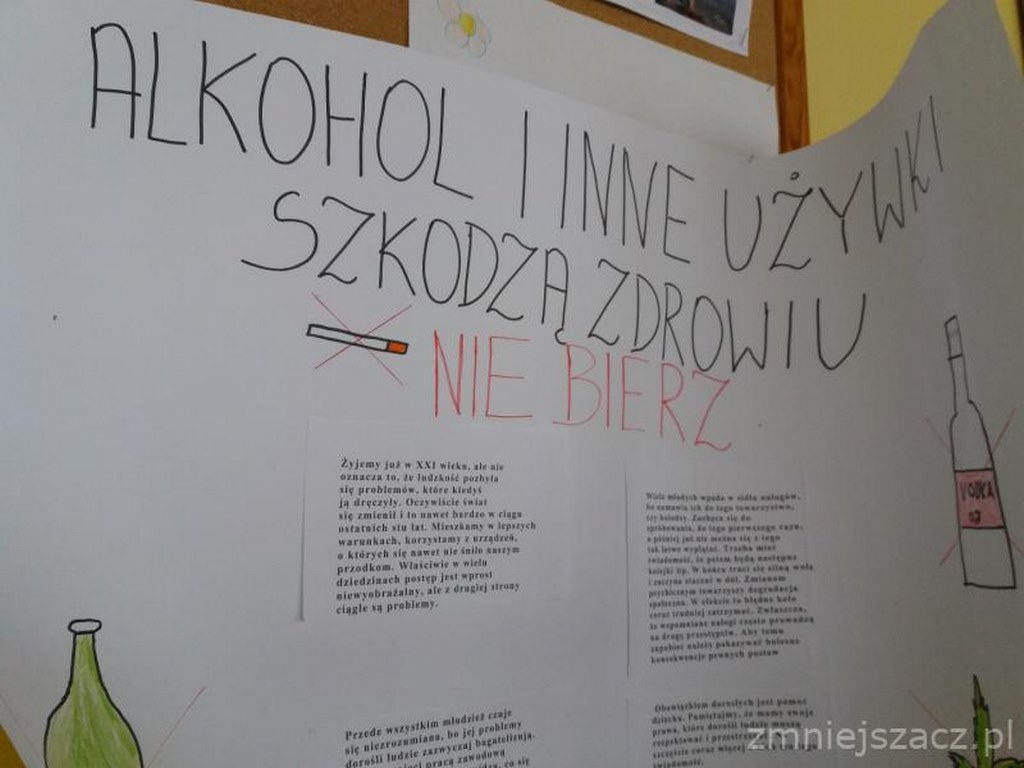 ALKOHOL I INNE UŻYWKI
SZKODZĄ ZDROWIU
NIE BIERZ
Żyjemy już w XXI wieku, ale nie
oznacza to, że ludzkość pozbyła
się problemów, które kiedyś
ją dręczyły. Oczywiście świat
się zmienił i to nawet bardzo w ciągu
ostatnich stu lat. Mieszkamy w lepszych
warunkach, korzystamy z urządzeń,
o których się nawet nie śniło naszym
przodkom. Właściwie w wielu
dziedzinach postęp jest wprost
niewyobrażalny, ale z drugiej strony
ciągle są problemy.
Wielu młodych wpada w sidła nałogów,
bo namawia ich do tego towarzystwo,
czy koledzy. Zachęca się do
spróbowania, do tego pierwszego razu,
a później już nie można się z tego
tak łatwo wyplątać. Trzeba mieć
świadomość, że potem będą następne
kolejki itp. W końcu traci się silną wolę
i zaczyna staczać w dół. Zmianom
psychicznym towarzyszy degradacja
społeczna. W efekcie to błędne koło
coraz trudniej zatrzymać. Zwłaszcza,
że wspomniane nałogi często prowadzą
na drogę przestępstw. Aby temu
zapobiec należy pokazywać bolesne
konsekwencje pewnych postaw
VODKA
Przede wszystkim młodzież czuje
się niezrozumiana, bo jej problemy
dorośli ludzie zazwyczaj bagatelizują.
pracą zawodową
co się
Obowiązkiem dorosłych jest pomóc
dziecku. Pamiętajmy, że mamy swoje
prawa, które dorośli ludzie muszą
respektować i
szczęście coraz więcej
świadomość.
zmniejszacz.pl